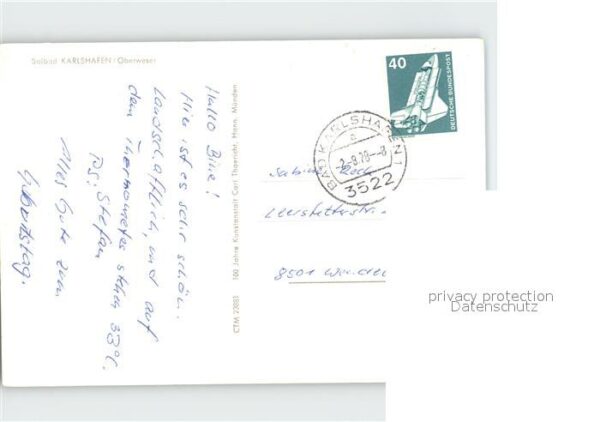 Solbad KARLSHAFEN / Oberweser
Hallo Bine!
Hier ist es sehr schön.
Landschaftlich, und auf
dem Thermometer stehen 33°C.
Ps: Stefan
Alles Gute zum
Geburtstag.
100 Jahre Kunstanstalt Carl Thoericht, Hann. Münden
CTM 23881
40
DEUTSCHE BUNDESPOST
BAD KARLSHAFEN 1
a
-2.-8.78.--8
3522
Sabine
8501
privacy protection
Datenschutz